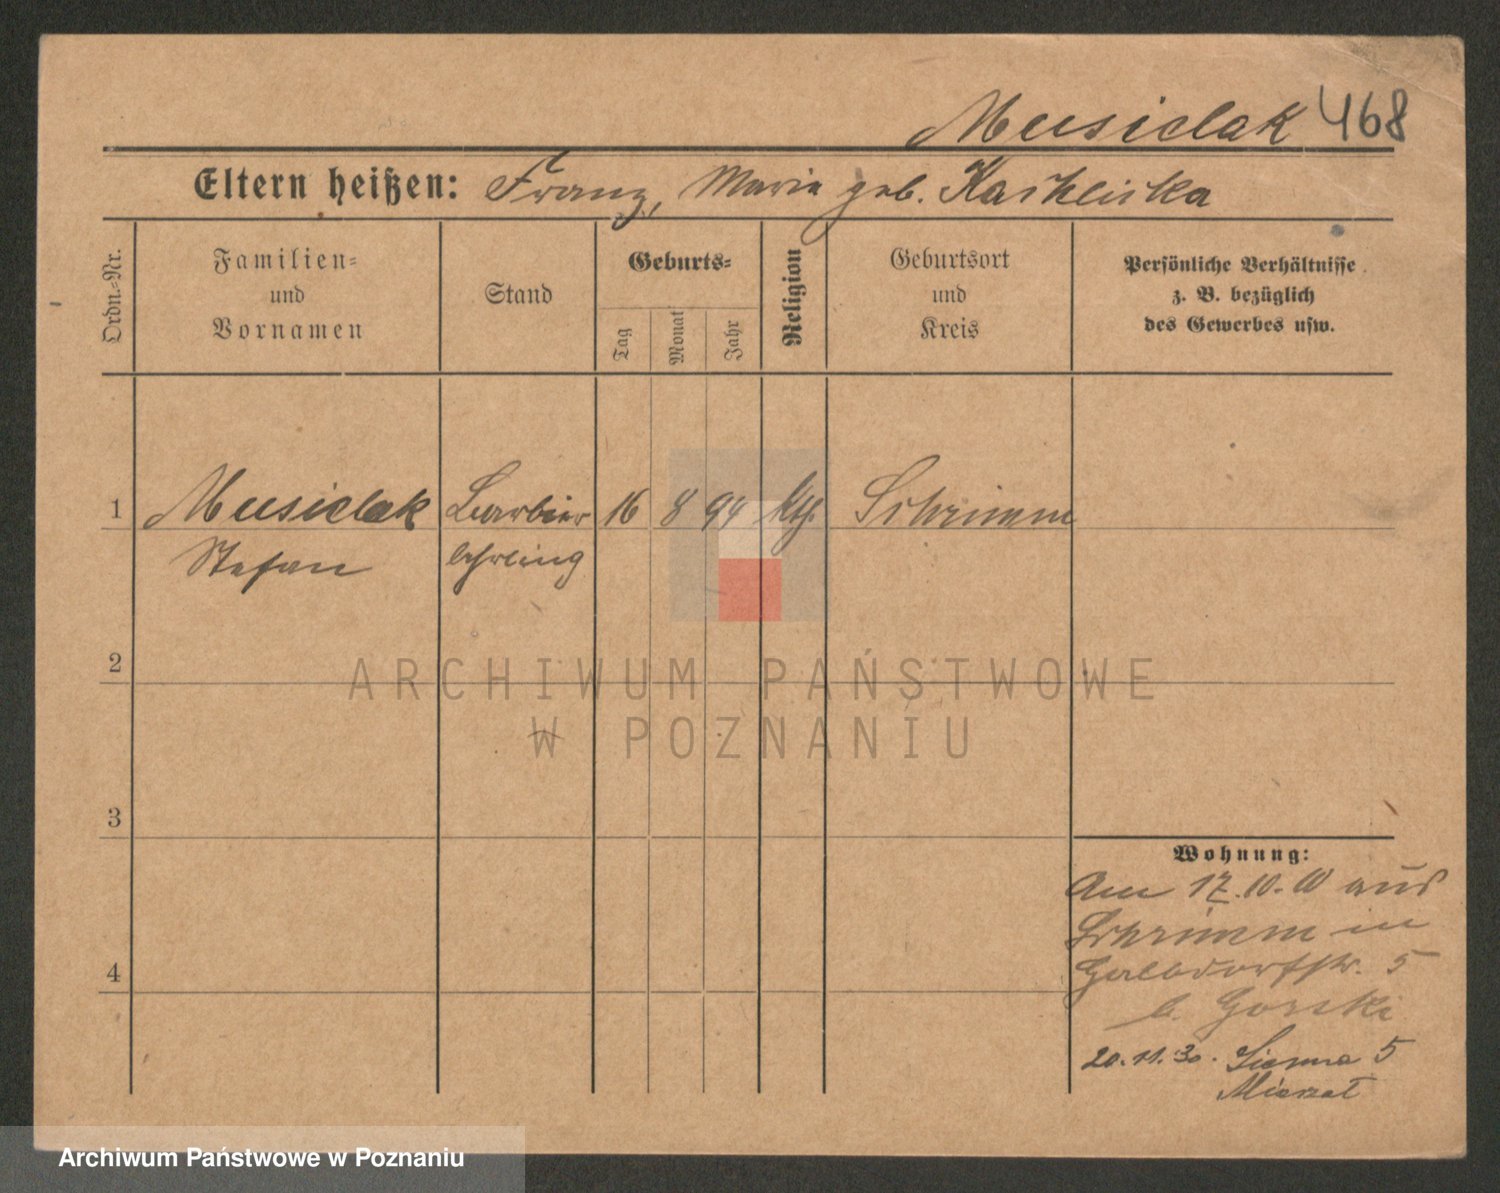 Musielak 468
Eltern heißen: Franz, Maria geb.
Ordn.-Nr.
Familien-
und
Vornamen
Stand
Geburts-
Tag
Monat
Jahr
Religion
Geburtsort
und
Kreis
Persönliche Verhältnisse
z. B. bezüglich
des Gewerbes usw.
1
Musielak
Stefan
Barbier
lehrling
16
8
94
kth.
Schrimm
2
3
4
Wohnung:
Am 17.10.10 aus
Schrimm in
5
b. Gorski
20.11.30. Sienna 5
ARCHIWUM PAŃSTWOWE
W POZNANIU
Archiwum Państwowe w Poznaniu